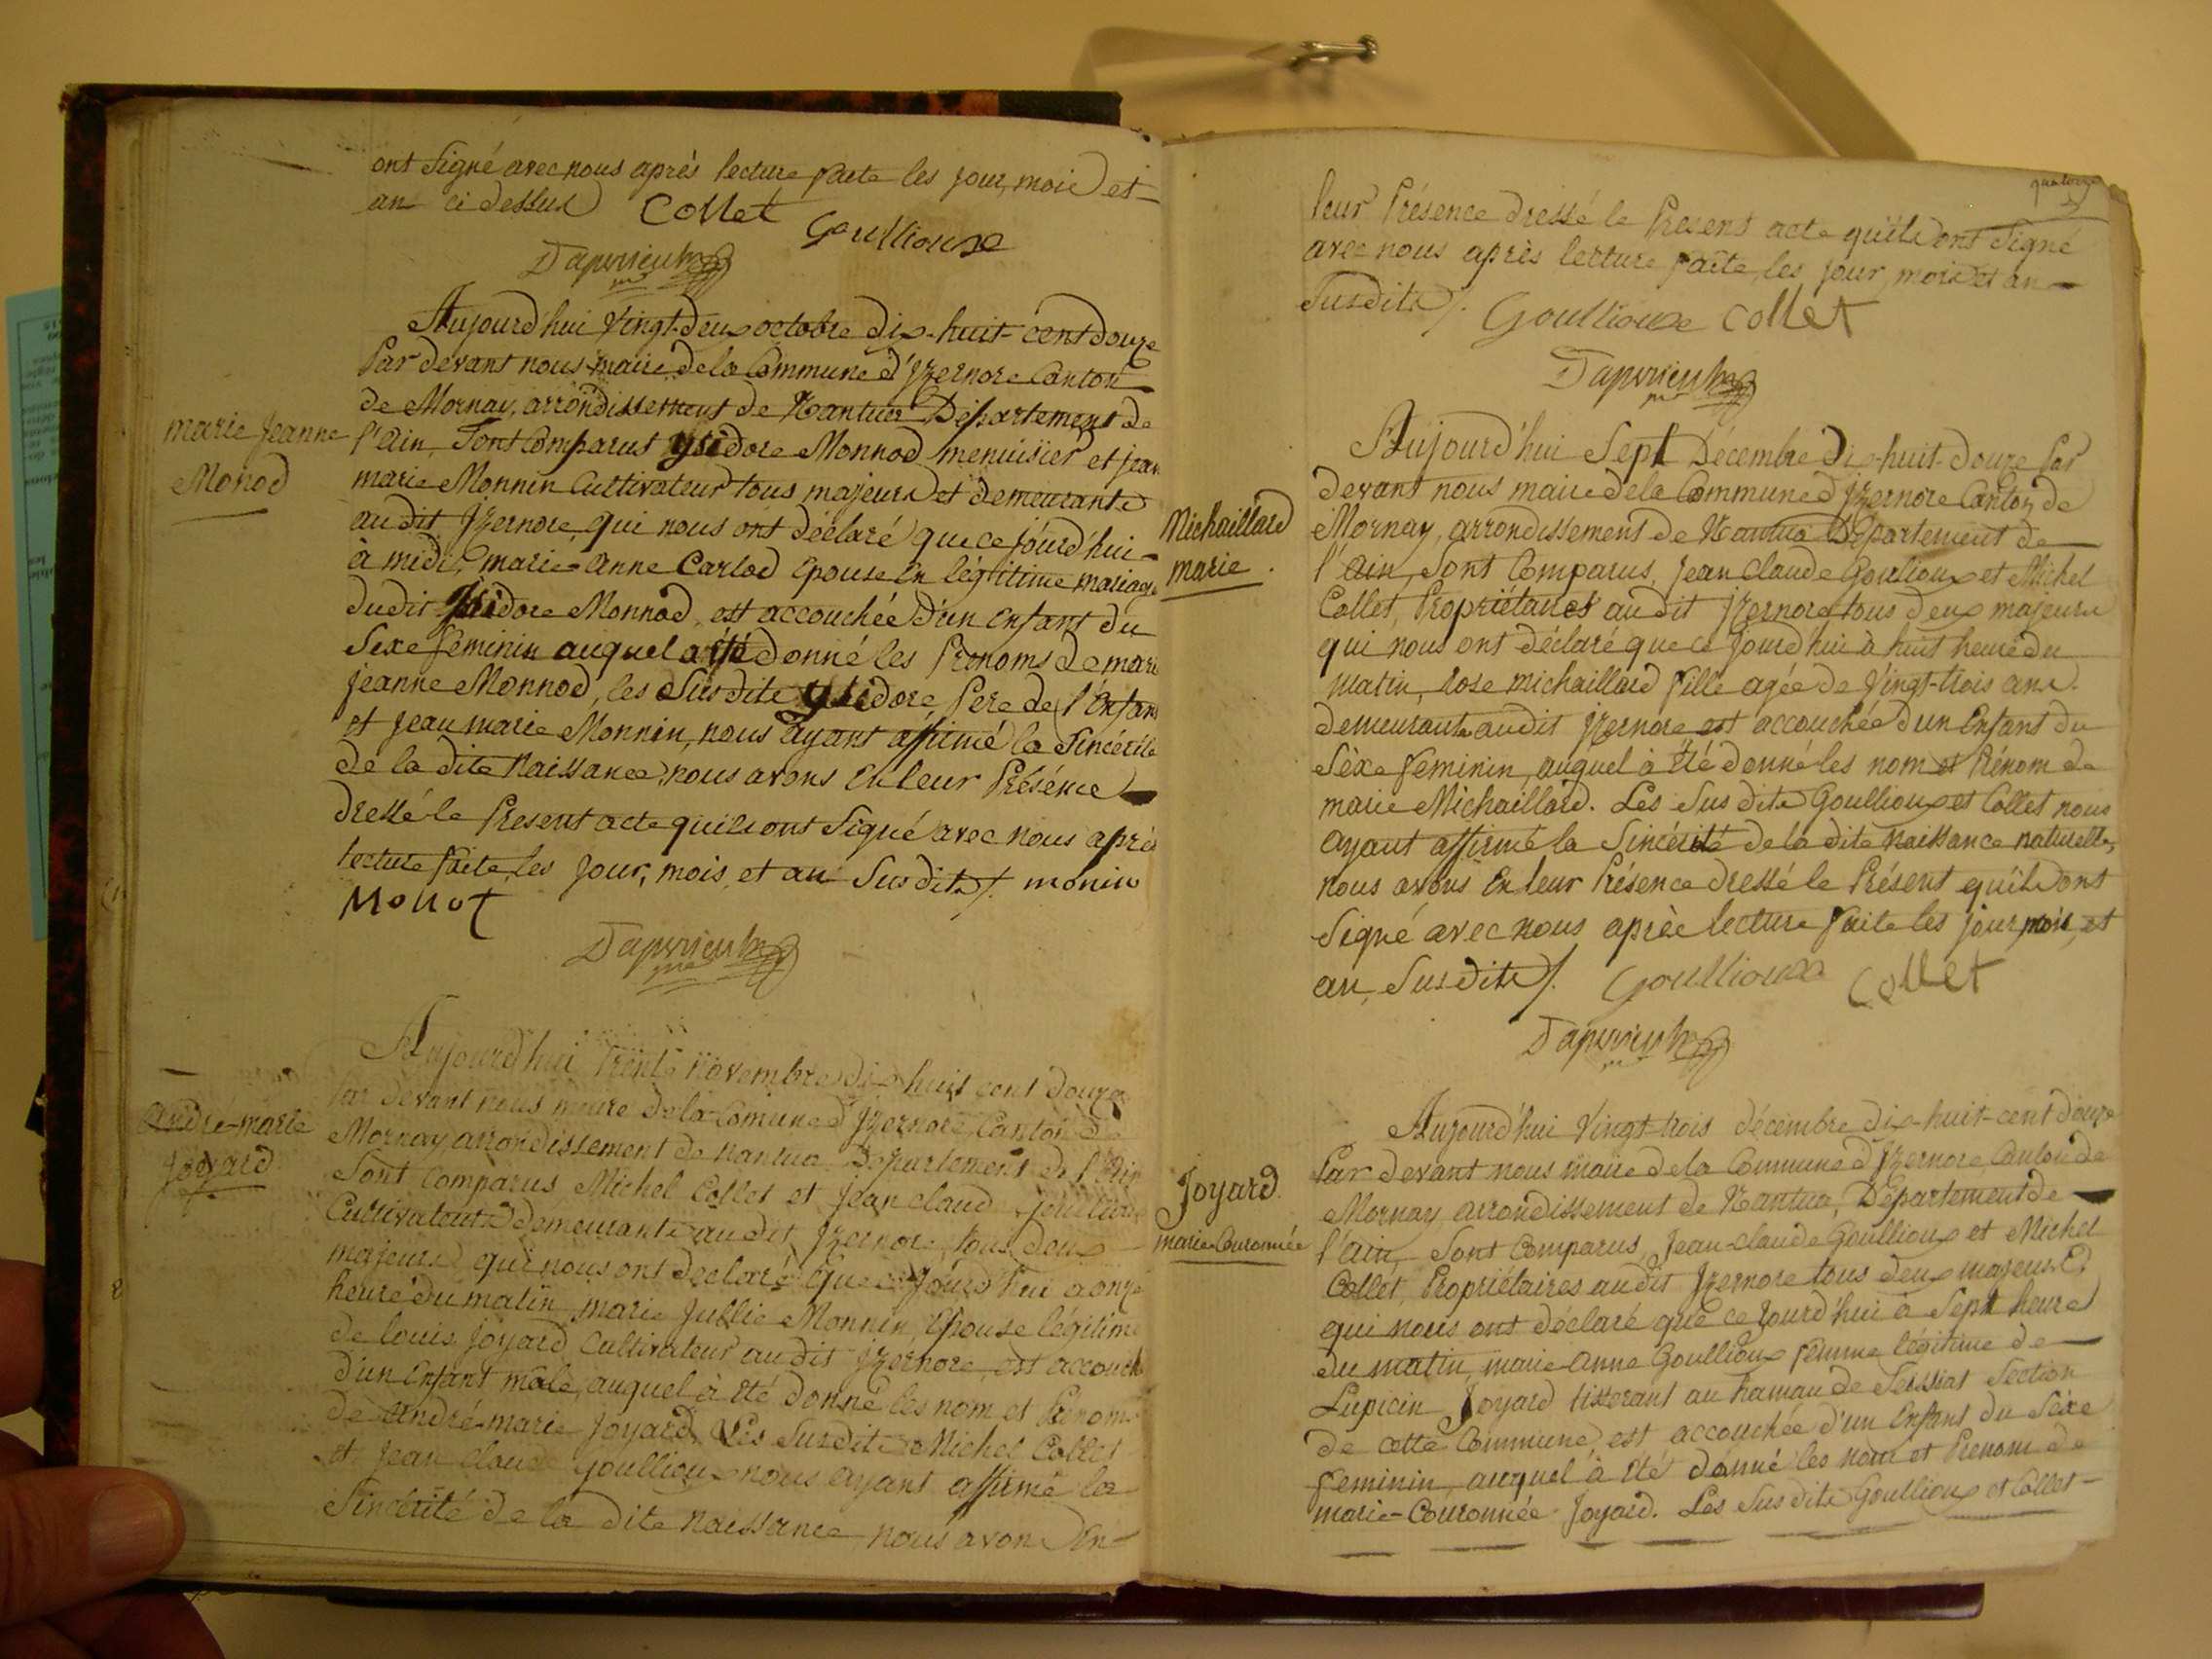 ont Signé avec nous après lecture faite les jour, mois et
an ci dessus Collet Goullioux
marie jeanne
Monod
Aujourd'hui Vingt-deux octobre dix-huit-cent douze
Par devant nous maire de la Commune d'Izernore Canton
de Mornay, arrondissement de Nantua Département de
l'ain, Sont Comparus ysidore Monnod menuisier et jean
marie Monnin Cultivateur tous majeurs et demeurants
au dit Izernore, qui nous ont déclaré que ce jourd'hui
à midi, marie-anne Carlod Epouse En légitime mariage
dudit ysidore Monnod, est accouchée d'un Enfant du
Sexe féminin auquel a été donné les Prenoms de marie
jeanne Monnod, les Susdits ysidore, Pere de l'Enfant
et jean marie Monnin, nous ayant affirmé la Sincérité
de la dite Naissance, nous avons En leur Présence
dressé le Present acte quils ont Signé avec nous après
lecture faite, les jour, mois, et an Susdits /. monin
Monot
andré-marie
joyard
Aujourd'hui trente Novembre dix huit cent douze
Par devant nous maire de la Comune d'Izernore, Canton de
Mornay, arrondissement de nantua Département de l'Ain
Sont Comparus Michel Collet et jean claud goullioux
Cultivateurs demeurants au dit Izernore, tous deux
majeurs qui nous ont declaré que ce jourd'hui a onze
heure du matin marie Jullie Monnin, Epouse légitime
de louis joyard Cultivateur au dit Izernore, est accouché
d'un Enfant male, auquel à été donné les nom et Prenoms
de André-marie joyard. Les Susdits Michel Collet
et jean claude goullioux nous ayant affirmé la
Sincérité de la dite naissance nous avons En
quatorze
leur Présence dressé le Present acte qu'ils ont Signé
avec nous après lecture faite, les jour, mois et an
Susdits /. Goullioux Collet
Michaillard
marie.
Aujourd'hui Sept Décembre dix-huit-douze Par
devant nous maire de la Commune d'Izernore Canton de
Mornay, arrondissement de Nantua Département de
l'ain, Sont Comparus, jean claude Goullioux et Michel
Collet, Propriétaires au dit Izernore tous deux majeurs
qui nous ont déclaré que ce jourd'hui à huit heure du
matin, rose michaillard fille agée de Vingt-trois ans.
demeurante au dit Izernore est accouchée d'un Enfant du
Sèxe feminin, auquel à été donné les nom et Prénom de
marie Michaillard. Les Susdits Goullioux et Collet nous
ayant affirmé la Sincérité de la dite naissance naturelle,
nous avons En leur Présence dressé le Présent qu'ils ont
Signé avec nous après lecture faite les jour mois, et
an, Susdits /. Goullioux Collet
Joyard.
marie-Couronnée
Aujourd'hui Vingt-trois décembre dix-huit-cent douze
Par devant nous maire de la Commune d'Izernore, Canton de
Mornay arrondissement de Nantua, Département de
l'ain, Sont Comparus, Jean-claude Goullioux et Michel
Collet, Propriétaires au dit Izernore tous deux majeurs.
qui nous ont déclaré que ce jourd'hui à Sept heure
du matin, marie-anne Goullioux femme légitime de
Lupicin Joyard tisserant au hamau de Sessiat Section
de cette Commune, est accouchée d'un Enfant du Sèxe
feminin, auquel à été donné les nom et Prenom de
marie-Couronnée Joyard. Les Susdits Goullioux et Collet